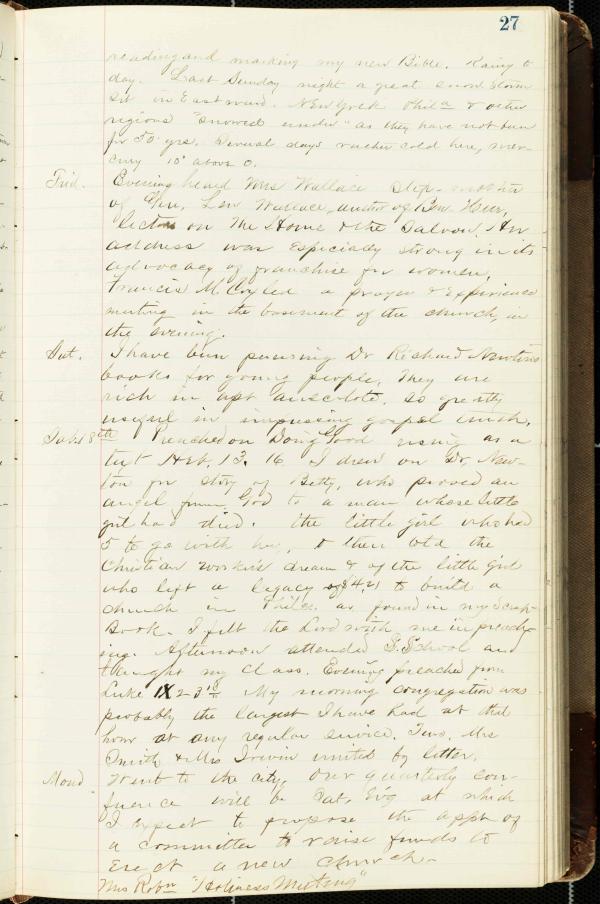 27
reading and marking my new Bible. Rainy to
day. Last Sunday night a great snow storm
set in Eastward. New York Phila & other
regions "snowed under" as they have not been
for 50 yrs. Several days rather cold here, mer-
cury 10° above 0.
Frid. Evening heard Mrs Wallace step-mother
of Gen. Lew Wallace, author of Ben Hur,
lecture on The Home & the Saloon. Her
address was especially strong in its
advocacy of franchise for women.
Francis led a prayer & experience
meeting in the basement of the church, in
the evening.
Sat. I have been perusing Dr Richard Newton's
books for young people. They are
rich in apt anecdote, so greatly
useful in impressing gospel truth.
Sab. 18th Preached on Doing Good using as a
text Heb. 13. 16. I drew on Dr. New-
ton for story of Betty, who proved an
angel from God to a man whose little
girl had died. The little girl who had
5 to go with her, & then told the
Christian worker's dream & of the little girl
who left a legacy of $4.21 to build a
church in Phila. as found in my Scrap-
Book. I felt the Lord with me in preach-
ing. Afternoon attended S. School and
taught my class. Evening preached from
Luke IX 23 My morning congregation was
probably the largest I have had at that
hour at any regular service. Two, Mrs
Smith & Mrs Irwin united by letter.
Mond. Went to the city. Our quarterly con-
ference will be Sat. Ev'g at which
I expect to propose the appt of
a committee to raise funds to
erect a new church.
Mrs Robn "Holiness Meeting"